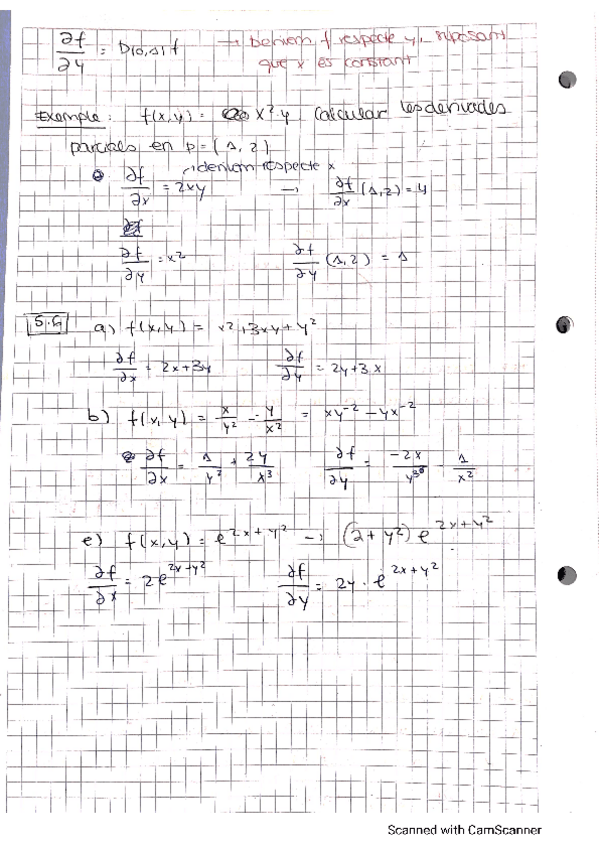 ∂f/∂y = D(0,1)f → Derivem f respecte y, suposant
que x és constant
Exemple: f(x,y) = x²·y. Calcular les derivades
parcials en p=(1,2)
derivem respecte x
∂f/∂x = 2xy → ∂f/∂x (1,2) = 4
∂f/∂y = x² ∂f/∂y (1,2) = 1
5.6 a) f(x,y) = x²+3xy+y²
∂f/∂x = 2x+3y ∂f/∂y = 2y+3x
b) f(x,y) = x/y² - y/x² = xy⁻² - yx⁻²
∂f/∂x = 1/y² + 2y/x³ ∂f/∂y = -2x/y³ - 1/x²
e) f(x,y) = e^(2x+y²) → (2+y²) e^(2x+y²)
∂f/∂x = 2e^(2x+y²) ∂f/∂y = 2y·e^(2x+y²)
Scanned with CamScanner